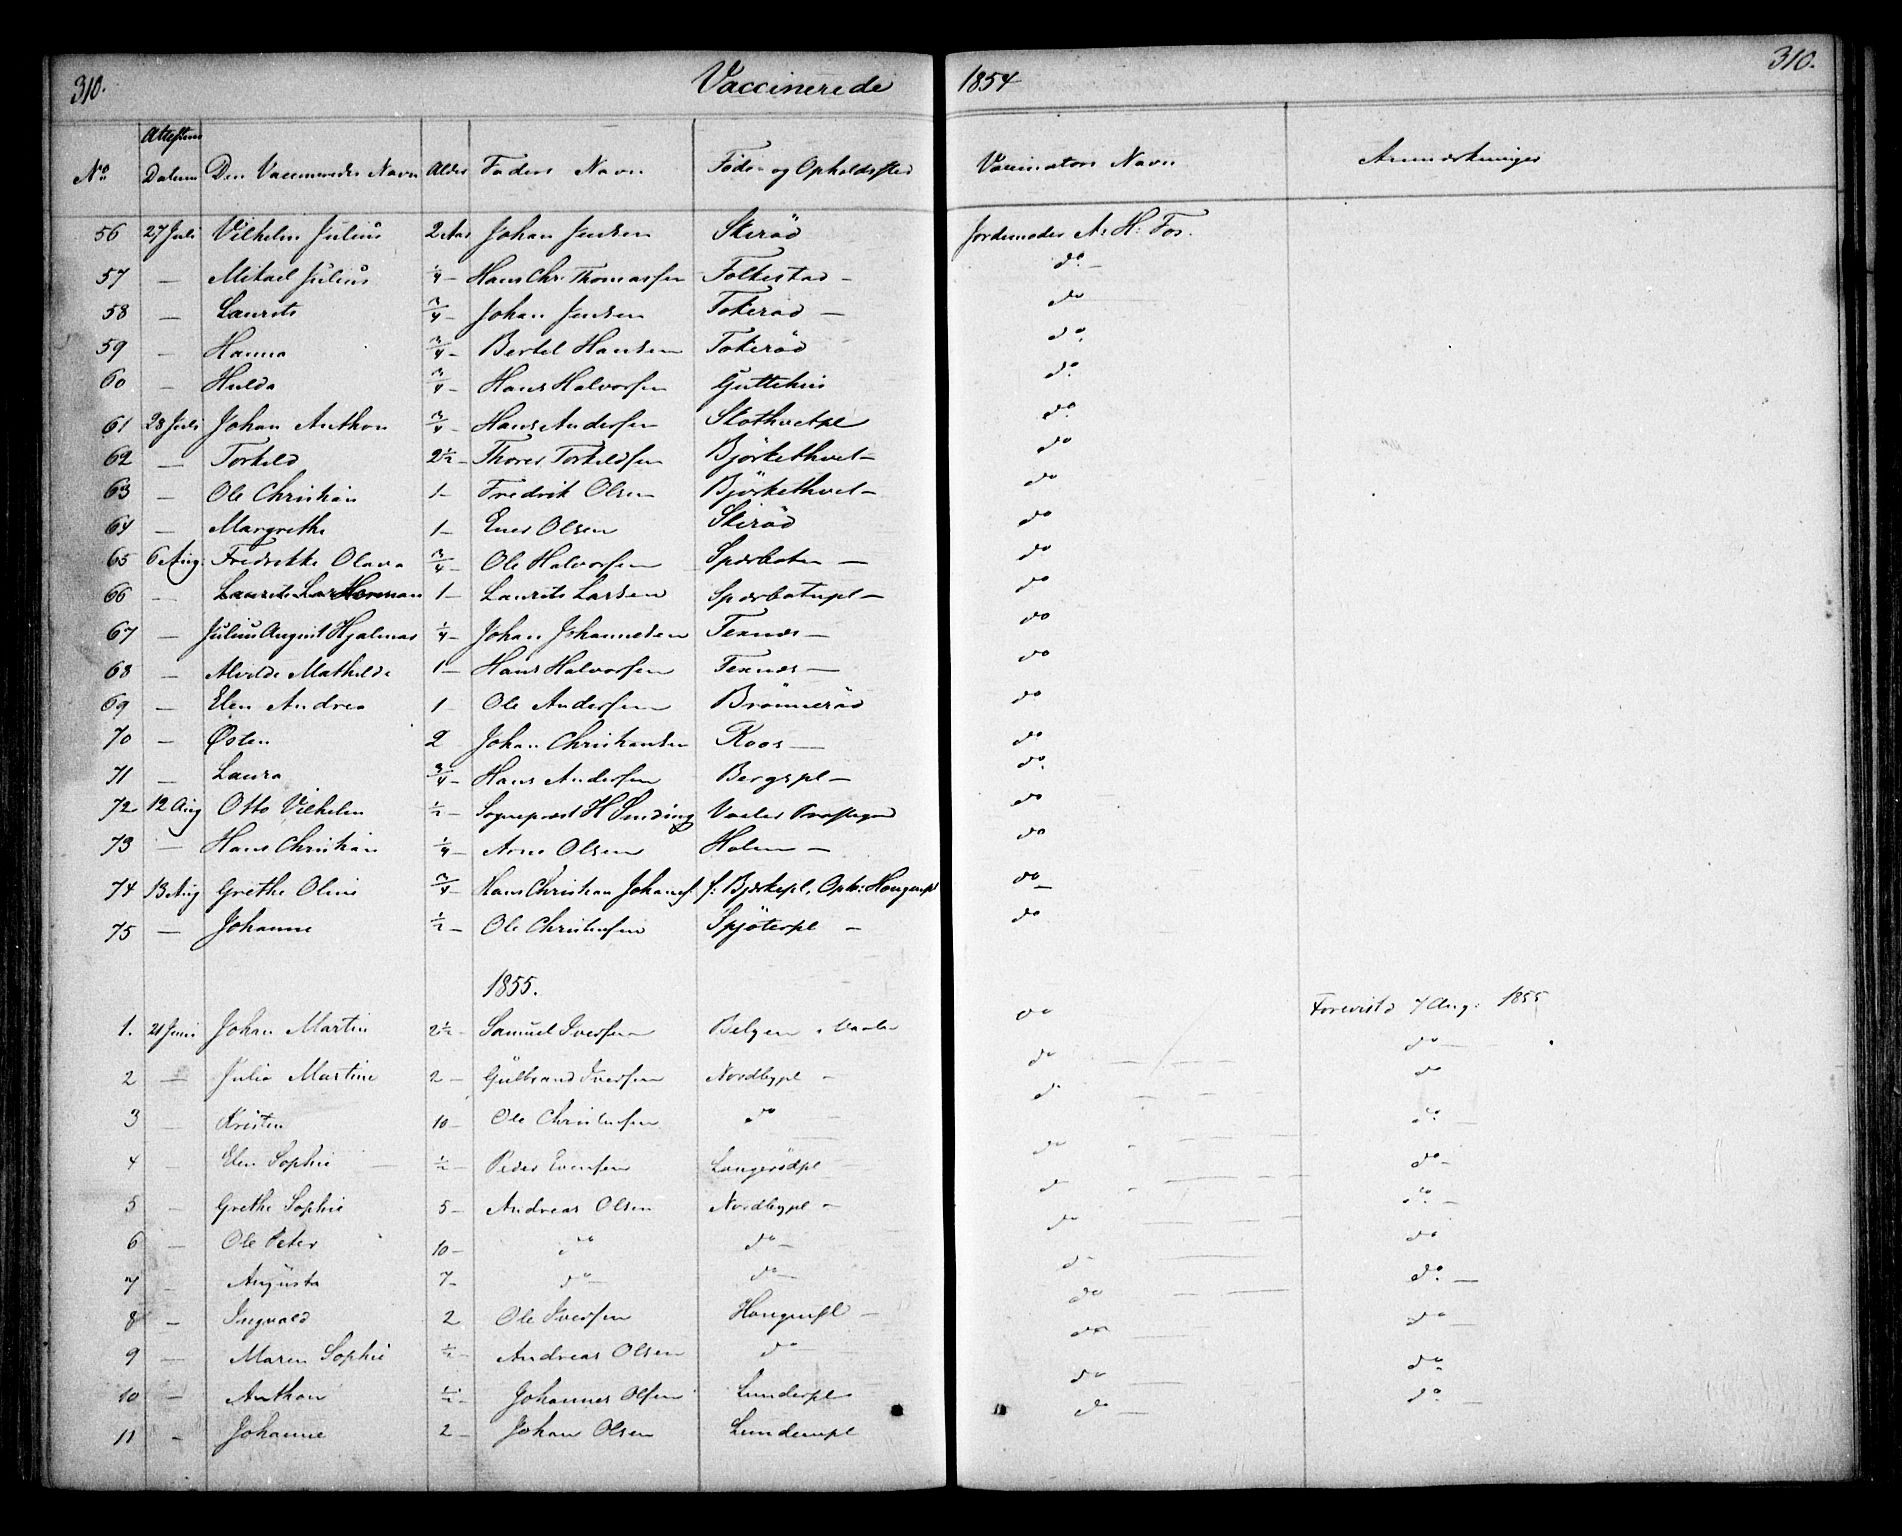 310. Vaccinerede 1854 310.
No Attestens Datum Den Vaccineredes Navn Alder Faders Navn Föde- og Opholdssted Vaccinators Navn Anmærkninger
56 27 Juli Vilhelm Julius 2 Aar Johan Jensen Skiröd Jordemoder A. H. Fos.
57 — Mikael Julius 1/4 — Hans Chr. Thomassen Folkestad — do —
58 — Laurits 3/4 — Johan Jensen Tokeröd — do
59 — Hanna 3/4 — Bertel Hansen Tokeröd do
60 — Hulda 3/4 — Hans Halvorsen Guttehus do
61 28 Juli Johan Anthon 3/4 — Hans Andersen Slothvetpl do
62 — Torkild 2 1/2 — Thores Torkildsen Björkethvet — do
63 — Ole Christian 1 — Fredrik Olsen Björkethvet — do
64 — Margrethe 1 — Enes Olsen Skiröd do
65 6 Aug. Fredrikke Olava 3/4 — Ole Halvorsen Spærbaten — do
66 — Herman 1 — Laurits Larsen Spærbatnpl — do
67 — Julius August Hjalmar 1/4 — Johan Johannesen Texnæs — do
68 — Alvilde Mathilde 1 — Hans Halvorsen Texnæs — do
69 — Elen Andrea 1 — Ole Andersen Brönneröd do
70 — Østen 2 Johan Christiansen Roos — do
71 — Laura 3/4 — Hans Andersen Bergspl — do
72 12 Aug Otto Vilhelm 1/2 — Sogneprest H Sinding Vaaler Præstegd do
73 — Hans Christian 1/4 — Arne Olsen Holm — do
74 13 Aug Grethe Oline 3/4 — Hans Christian Johans. f: Bjerkepl, Oph: Haugenpl do —
75 — Johanne 1/2 — Ole Christensen Spjöterpl — do
1855.
1. 21 Juni Johan Martin 2 1/2 — Samuel Iversen Belgen i Vaaler do Forevist d 7 Aug: 1855
2 — Julia Martine 2 — Gulbrand Iversen Nordbypl — do do —
3 — Kristen 10 — Ole Christensen do do do
4 — Elen Sophie — 1/2 — Peder Evensen Langerödpl do do —
5 — Grethe Sophie 5 — Andreas Olsen Nordbypl — do do —
6 — Ole Peter 10 — do do — do do —
7 — Augusta 7 — do — do — do do
8 — Ingvald 2 Ole Iversen Haugenpl — do do —
9 — Maren Sophie 1/2 — Andreas Olsen do do do —
10 — Anthon 1/2 — Johannes Olsen Lunderpl do — do
11 — Johanne 2 — Johan Olsen Lundernpl do — do —